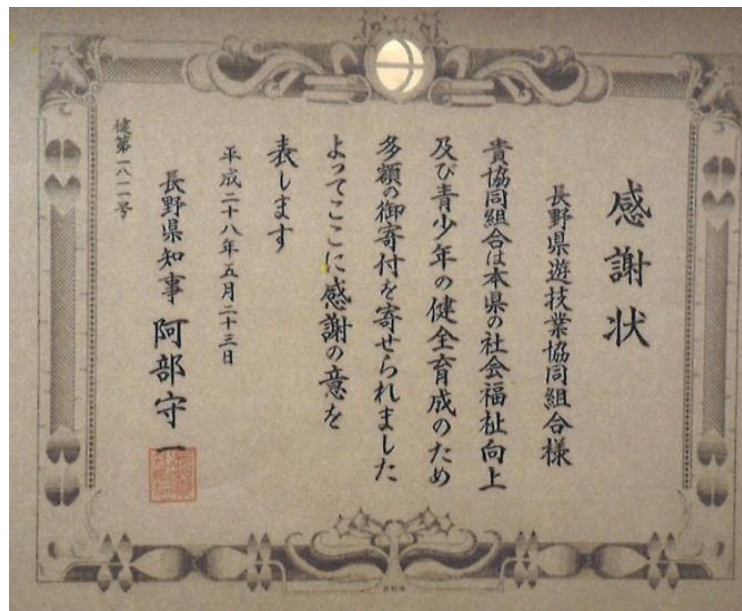 感謝状
長野県遊技業協同組合様
貴協同組合は本県の社会福祉向上
及び青少年の健全育成のため
多額の御寄付を寄せられました
よってここに感謝の意を
表します
平成二十八年五月二十三日
長野県知事 阿部守一
健第一八一一号